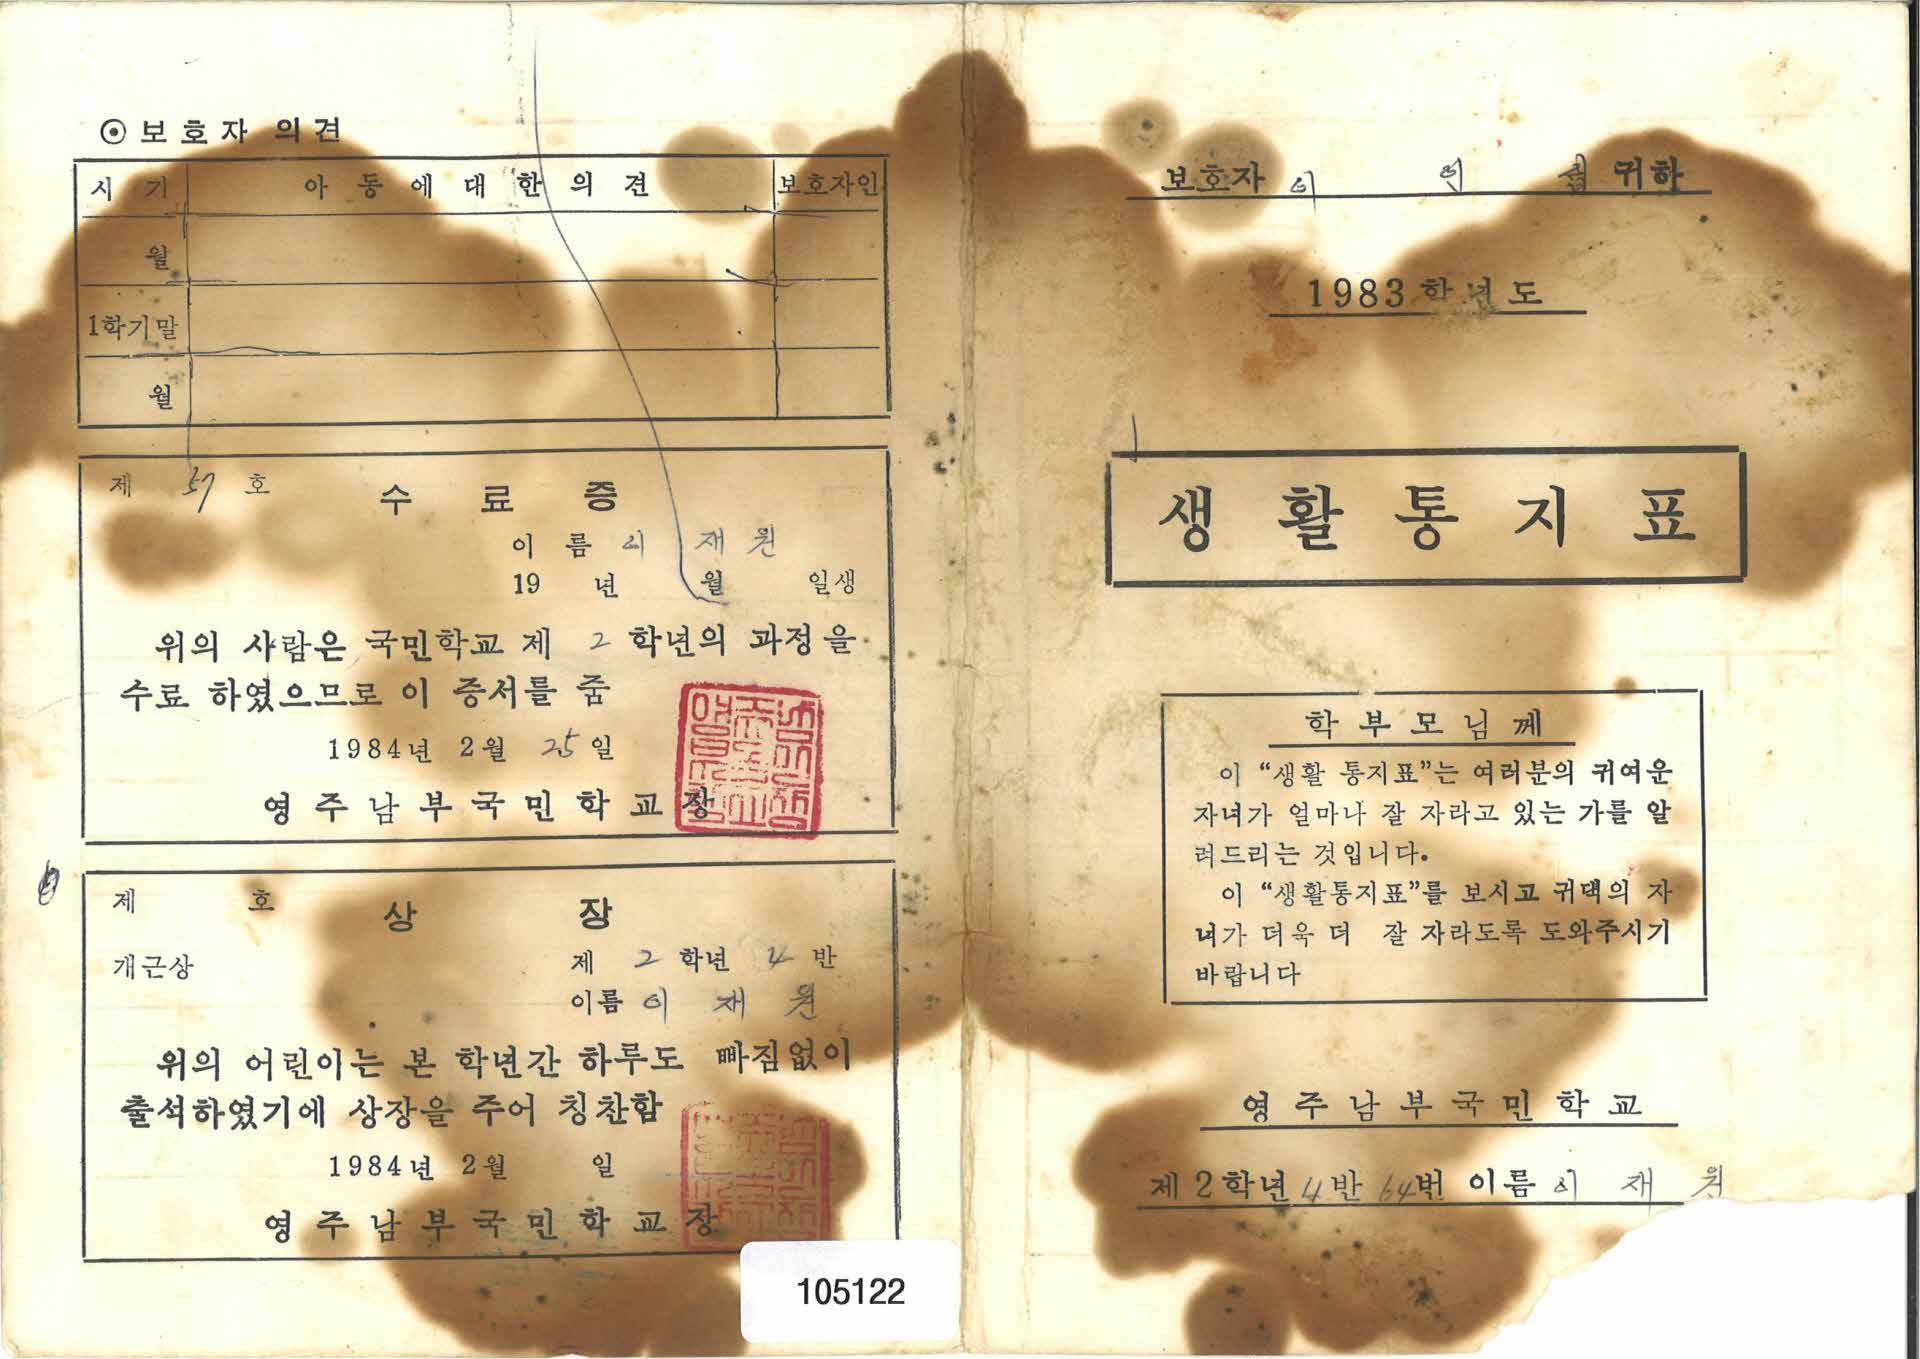 ⊙ 보호자 의견
시 기 아 동 에 대 한 의 견 보호자인
월
1학기말
월
제 57 호 수 료 증
이 름 이 재 원
19 년 월 일생
위의 사람은 국민학교 제 2 학년의 과정을
수료 하였으므로 이 증서를 줌
1984년 2월 25일
영 주 남 부 국 민 학 교 장
제 호 상 장
개근상 제 2 학년 4 반
이름 이 재 원
위의 어린이는 본 학년간 하루도 빠짐없이
출석하였기에 상장을 주어 칭찬함
1984년 2월 일
영 주 남 부 국 민 학 교 장
105122
보호자 이 귀하
1983 학년도
생 활 통 지 표
학 부 모 님 께
이 “생활 통지표”는 여러분의 귀여운
자녀가 얼마나 잘 자라고 있는 가를 알
려드리는 것입니다.
이 “생활통지표”를 보시고 귀댁의 자
녀가 더욱 더 잘 자라도록 도와주시기
바랍니다
영 주 남 부 국 민 학 교
제 2 학년 4 반 64번 이름 이 재 원